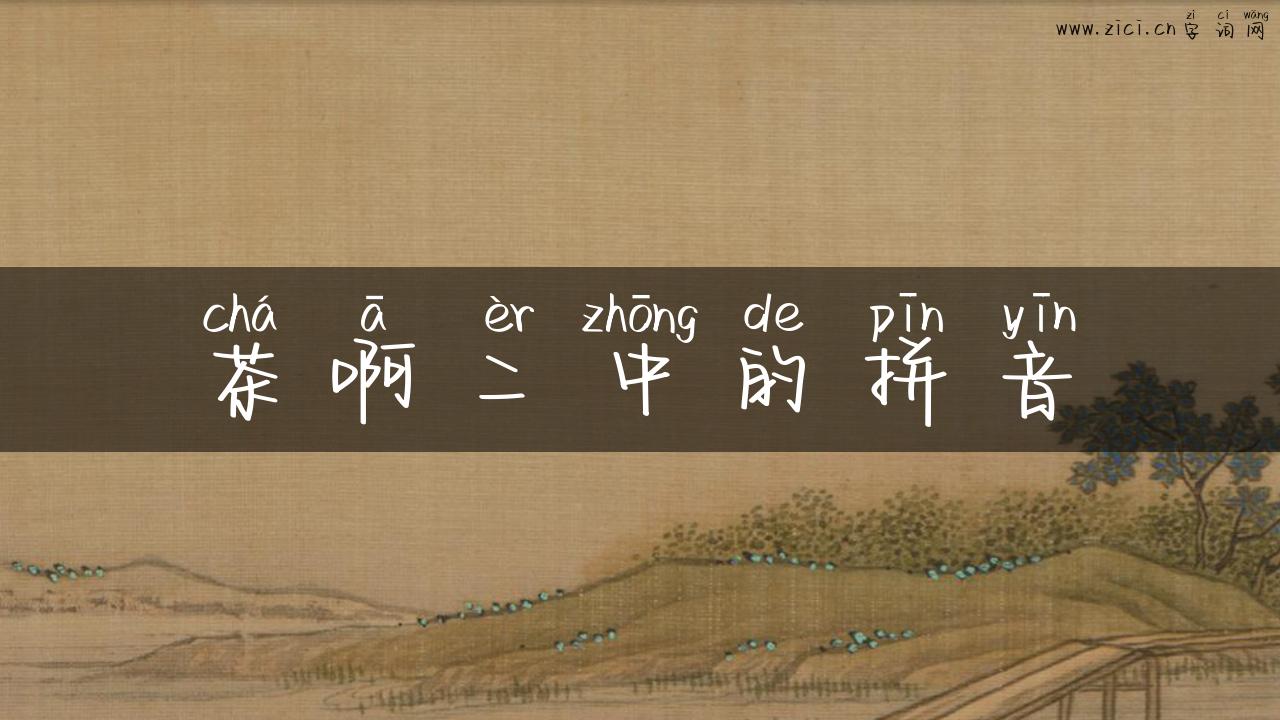 zì cí wǎng
www.zici.cn字词网
chá ā èr zhōng de pīn yīn
茶啊二中的拼音